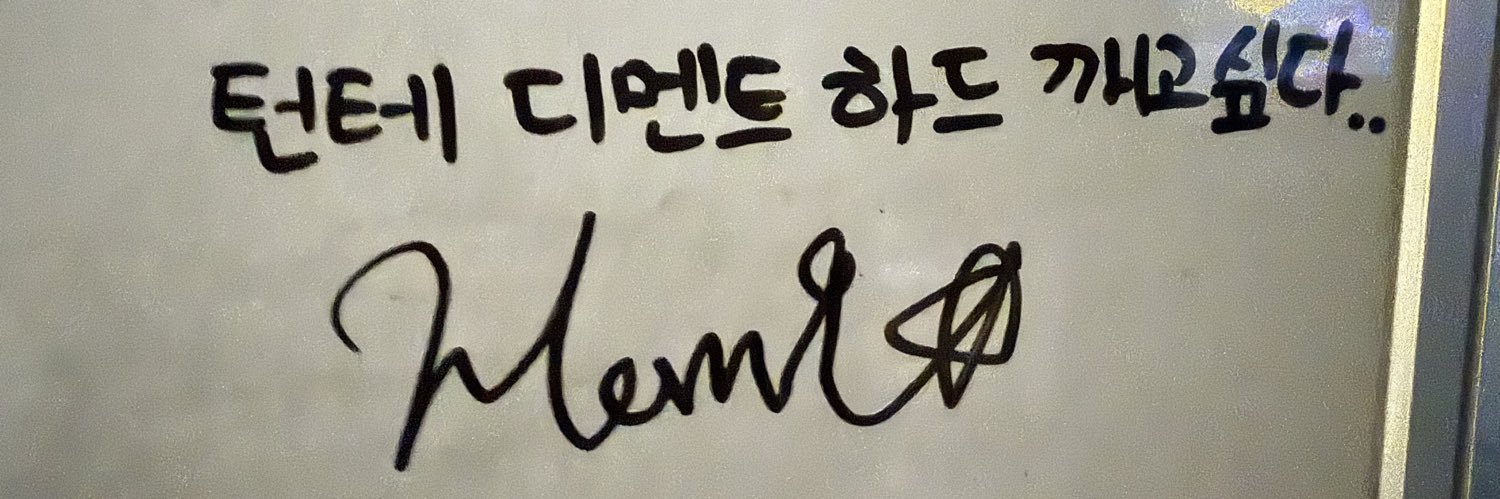 턴테 디멘드 하드 깨고싶다..